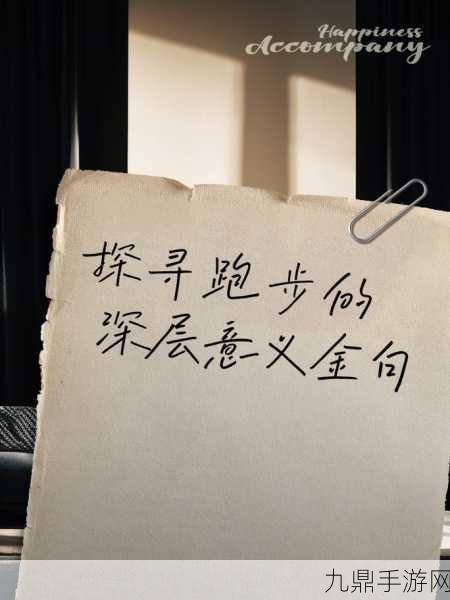 Happiness
Accompany
探寻跑步的
深层意义金句
九鼎手游网